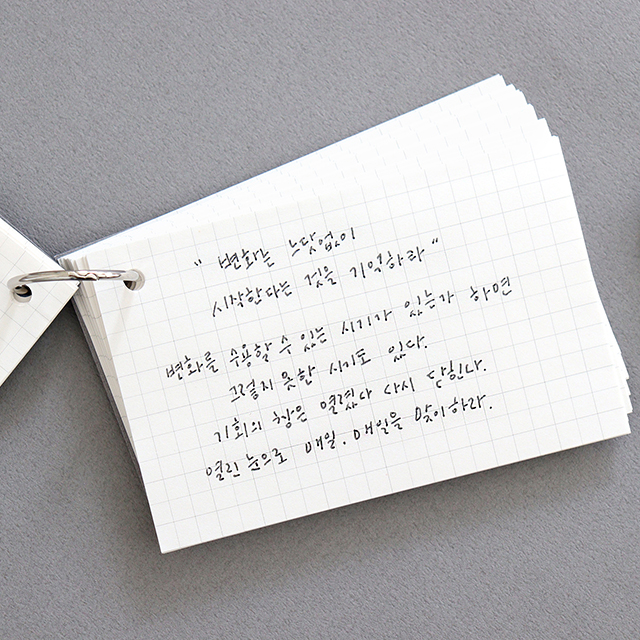 " 변화는 느닷없이
시작한다는 것을 기억하라 "
변화를 수용할 수 있는 시기가 있는가 하면
그렇지 못한 시기도 있다.
기회의 창은 열렸다 다시 닫힌다.
열린 눈으로 매일. 매일을 맞이하라.